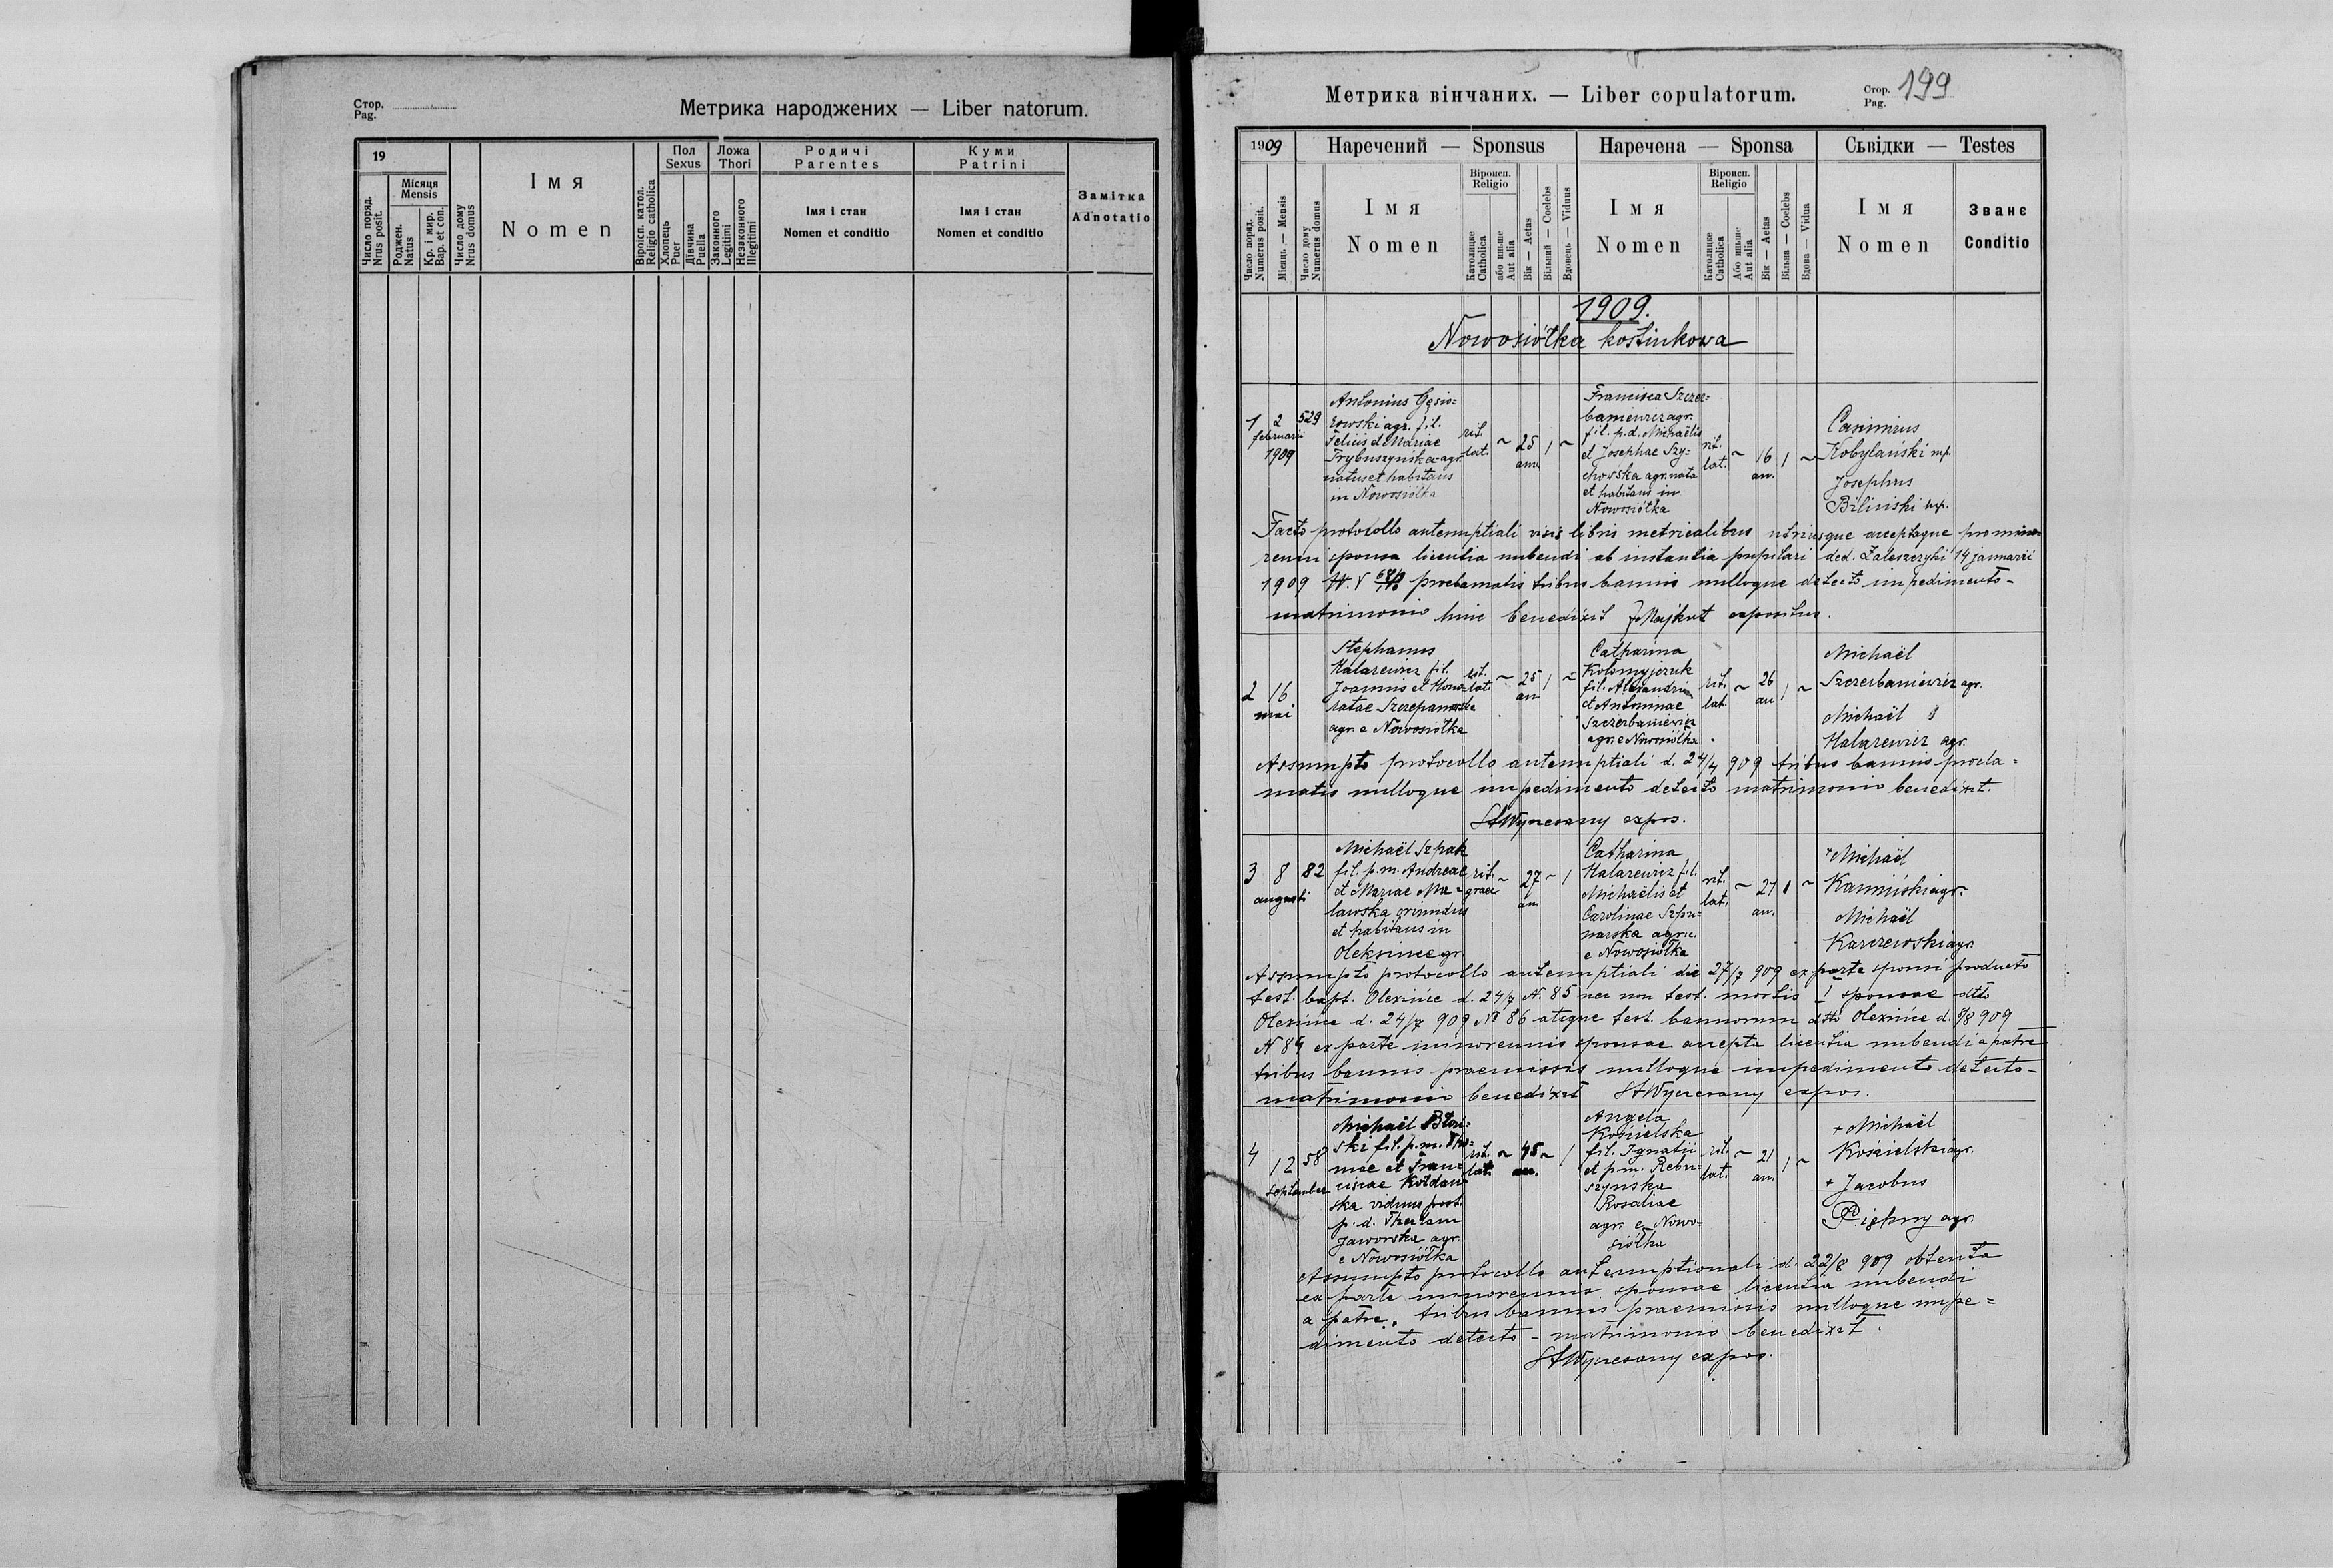 Стор.
Pag.
Метрика народжених — Liber natorum.
19
Місяця
Mensis
Число поряд.
Nrus posit.
Роджен.
Natus
Кр. і мир.
Bap. et con.
Число дому
Nrus domus
Імя
Nomen
Віроісп. катол.
Religio catholica
Пол
Sexus
Хлопець
Puer
Дівчина
Puella
Ложа
Thori
Законного
Legitimi
Незаконного
Illegitimi
Родичі
Parentes
Імя і стан
Nomen et conditio
Куми
Patrini
Імя і стан
Nomen et conditio
Замітка
Adnotatio
Метрика вінчаних. — Liber copulatorum.
Стор.
Pag.
199
1909
Наречений — Sponsus
Наречена — Sponsa
Сьвідки — Testes
Число поряд.
Numerus posit.
Місяць — Mensis
Число дому
Numerus domus
Імя
Nomen
Віроисп.
Religio
Католицке
Catholica
або иньше
Aut alia
Вік — Aetas
Вільний — Coelebs
Вдовець — Viduus
Імя
Nomen
Віроисп.
Religio
Католицке
Catholica
Або иньше
Aut alia
Вік — Aetas
Вільна — Coelebs
Вдова — Vidua
Імя
Nomen
Званє
Conditio
1909.
Nowosiółka kostiukowa
1
2
februarii
1909
529
Antonius Gęsio=
rowski agr. fil.
Felicis et Mariae
Trybuszyńska agr.
natus et habitans
in Nowosiółka
rit.
lat.
~
25
an.
1
~
Francisca Szczer=
baniewicz agr.
fil. p.d. Michaëlis
et Josephae Szy=
chowska agr. nata
et habitans in
Nowosiółka
rit.
lat.
~
16
an.
1
~
Casimirus
Kobylański mp.
Josephus
Biliński mp.
Facto protocollo antenuptiali visis libris metricalibus utriusque acceptaque pro mino=
renni sponsa licentia nubendi ab instantia pupilari ded. Zaleszczyki 14 januarii
1909 proclamatis tribus bannis nulloque detecto impedimento-
matrimonio hinc benedixit J Majkut expositus.
2
16
mai
Stephanus
Halarewicz fil.
Joannis et Hono=
ratae Szczepanowska
agr. e Nowosiółka
rit.
lat.
~
25
an
1
~
Catharina
Kołomyjczuk
fil. Alexandri
et Antoninae
Szczerbaniewicz
agr. e Nowosiółka
rit.
lat.
~
26
an
1
~
Michaël
Szczerbaniewicz agr.
Michaël
Halarewicz agr.
Assumpto protocollo antenuptiali d. 24/4 909 tribus bannis procla=
matis nulloque impedimento detecto matrimonio benedixit.
StWyczesany expos.
3
8
augusti
82
Michaël Szpak
fil. p.m. Andreae
et Mariae Ma=
lawska oriundus
et habitans in
Oleksince gr.
rit.
graec
~
27
an.
~
1
Catharina
Halarewicz fil.
Michaëlis et
Carolinae Szpu=
narska agr.
e Nowosiółka
rit.
lat.
~
21
an.
1
~
+Michaël
Kamiński agr.
Michaël
Karczewski agr.
Assumpto protocollo antenuptiali die 27/7 909 ex parte sponsi producto
test. bapt. Olexińce d. 24/7 N. 85 nec non test. mortis I sponsae dtto
Olexińce d. 24/7 909 No 86 atque test. bannorum dtto Olexińce d. 8/8 909
N 89 ex parte minorennis sponsae accepta licentia nubendi a patre
tribus bannis praemissis nulloque impedimento detecto-
matrimonio benedixit StWyczesany expos.
4
12
september
58
Michaël Błoń=
ski fil. p.m. Tho=
mae et Fran=
ciscae Kołdań=
ska viduus post.
p.d. Theclam
Jaworska agr.
e Nowosiółka
rit.
lat.
~
45
an.
~
1
Angela
Kosielska
fil. Ignatii
et p.m. Rebu=
szynska
Rosaliae
agr. e Nowo=
siółka
rit.
lat.
~
21
an.
1
~
+ Michaël
Kosielski agr.
+ Jacobus
Piękny agr.
Assumpto protocollo antenuptionali d. 22/8 909 obtenta
ex parte minorennis sponsae licentia nubendi
a patre, tribus bannis praemissis nulloque impe=
dimento detecto - matrimonio benedixit.
StWyczesany expos.